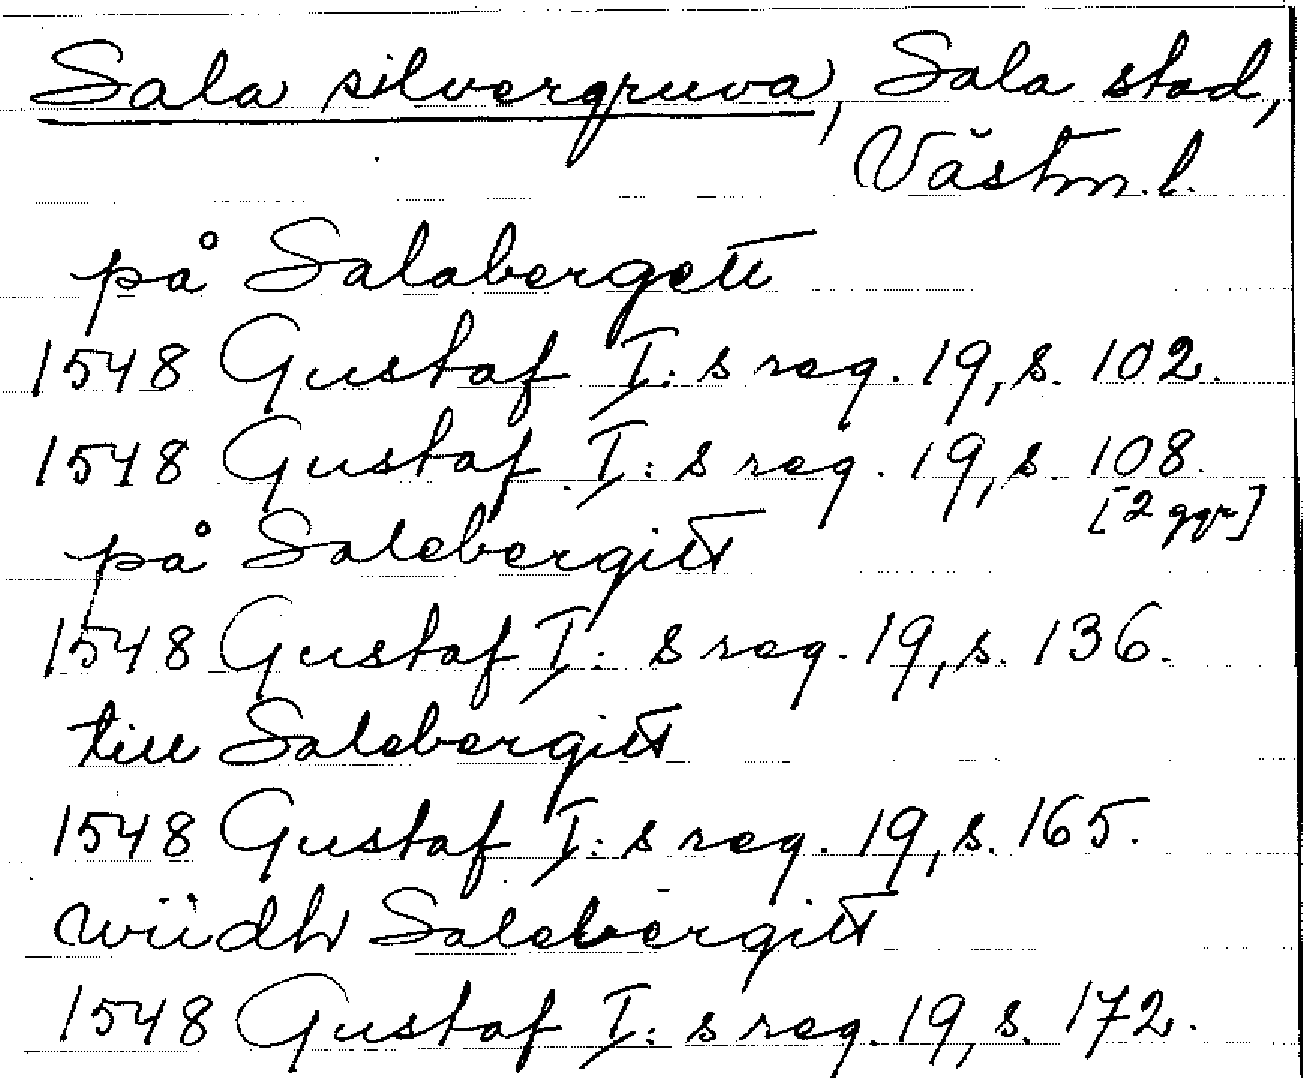 Sala silvergruva, Sala stad,
Västm. l.
på Salabergett
1548 Gustaf I:s reg. 19, s. 102.
1548 Gustaf I:s reg. 19, s. 108.
[2 ggr]
på Salebergitt
1548 Gustaf I:s reg. 19, s. 136.
till Salebergitt
1548 Gustaf I:s reg. 19, s. 165.
wiidh Salebergitt
1548 Gustaf I:s reg. 19, s. 172.